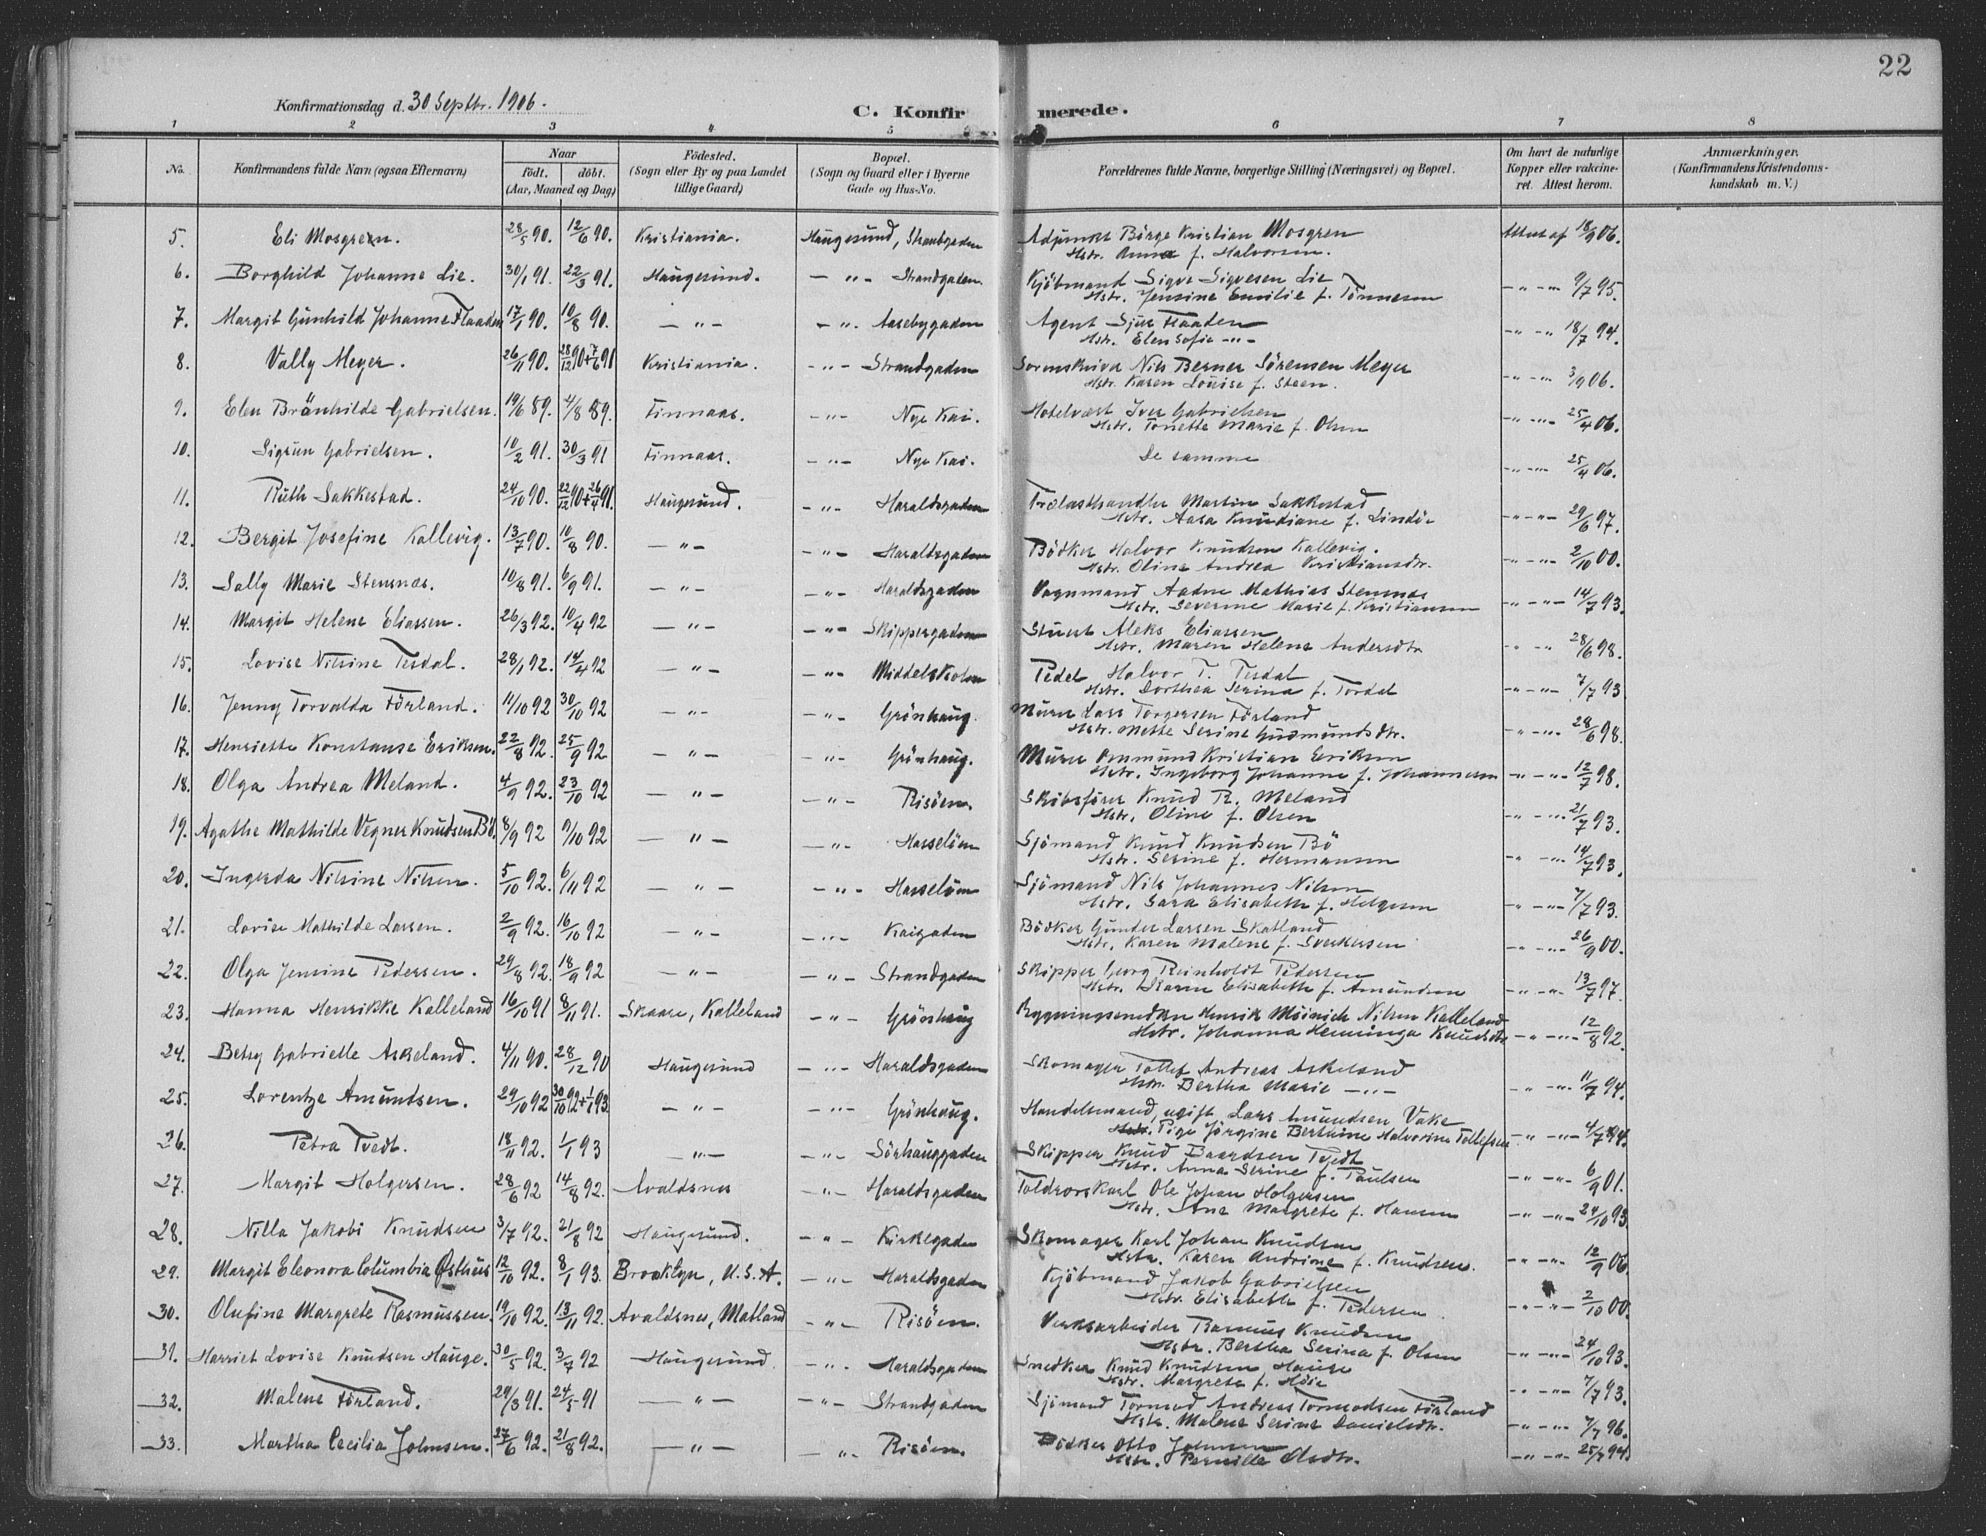 22
Konfirmationsdag d. 30 Septbr. 1906.
C. Konfirmerede.
1 2 3 4 5 6 7 8
No. Konfirmandens fulde Navn (ogsaa Efternavn) Naar født. døbt. (Aar, Maaned og Dag) Fødested. (Sogn eller By og paa Landet tillige Gaard) Bopæl. (Sogn og Gaard eller i Byerne Gade og Hus-No. Forældrenes fulde Navne, borgerlige Stilling (Næringsvei) og Bopæl. Om havt de naturlige Kopper eller vakcineret. Attest herom. Anmærkninger. (Konfirmandens Kristendomskundskab m. V.)
5. Eli Mosgren. 28/5 90. 12/6 90. Kristiania. Haugesund, Strandgaden Adjunkt Børge Kristian Mosgren Attest af 18/9 06.
Hstr. Anna f. Halvorsen.
6. Borghild Johanne Lie. 30/1 91. 22/3 91. Haugesund. — " — Strandgaden. Kjøbmand Sigve Sigvesen Lie — " — 9/7 95.
Hstr. Jensine Emilie f. Tønnesen
7. Margit Gunhild Johanne Flaaden 17/1 90. 10/8 90. — " — — " — Aasebygaden Agent Sjur Flaaden — " — 18/7 94.
Hstr. Elen Sofie — " —
8. Vally Meyer. 26/11 90. 28/12 90 + 7/6 91 Kristiania. — " — Strandgaden Sorenskriver Nils Berner Sørensen Meyer — " — 3/9 06.
Hstr. Karen Louise f. Steen.
9. Elen Brünhilde Gabrielsen. 19/6 89. 4/8 89. Finnaas. — " — Nye Kai. Hotelvært Iver Gabrielsen — " — 25/4 06.
Hstr. Tonette Marie f. Olsen
10. Sigrun Gabrielsen. 10/2 91. 30/3 91 Finnaas. — " — Nye Kai. De samme — " — 25/4 06.
11. Ruth Sakkestad. 24/10 90. 22/12 90 + 26/4 91. Haugesund. — " — Haraldsgaden Trælasthandler Martin Sakkestad — " — 29/6 97.
Hstr. Aasa Knudiane f. Lindøe
12. Bergit Josefine Kallevig. 13/7 90. 10/8 90. — " — — " — Haraldsgaden Bødker Halvor Knudsen Kallevig. — " — 2/10 00.
Hstr. Oline Andrea Kristiansdtr.
13. Sally Marie Stensnæs. 10/8 91. 6/9 91. — " — — " — Haraldsgaden Vognmand Aadne Mathias Stensnæs — " — 14/7 93.
Hstr. Severine Marie f. Kristiansen
14. Margit Helene Eliassen. 26/3 92. 10/4 92 — " — — " — Skippergaden Stuert Aleks Eliassen — " — 28/6 98.
Hstr. Maren Helene Andersdtr
15. Lovise Nilsine Tesdal. 28/1 92. 14/4 92 — " — — " — Middelskolen Pedel Halvor T. Tesdal — " — 7/7 93
Hstr. Dorthea Serina f. Tordal
16. Jenny Torvalda Førland. 11/10 92 30/10 92 — " — — " — Grønhaug. Murer Lars Torgersen Førland — " — 28/6 98.
Hstr. Mette Serine Gudmundsdtr.
17. Henriette Konstanse Eriksen. 22/8 92. 25/9 92 — " — — " — Grønhaug. Murer Ommund Kristian Eriksen — " — 12/7 98.
Hstr. Ingeborg Johanne f. Johannesen
18. Olga Andrea Meland. 4/9 92. 23/10 92 — " — — " — Risøen. Skibsfører Knud R. Meland — " — 21/7 93.
Hstr. Oline f. Olsen
19. Agathe Mathilde Vegner Knudsen Bø. 8/9 92 9/10 92 — " — — " — Hasseløen Sjømand Knud Knudsen Bø — " — 14/7 93.
Hstr. Serine f. Hermansen
20. Ingerda Nilsine Nilsen. 5/10 92. 6/11 92 — " — — " — Hasseløen Sjømand Nils Johannes Nilsen — " — 7/7 93.
Hstr. Sara Elisabeth f. Helgesen
21. Lovise Mathilde Larsen. 2/9 92. 16/10 92 — " — — " — Kaigaden Bødker Gunder Larsen Skatland — " — 26/9 00.
Hstr. Karen Malene f. Sverkersen
22. Olga Jensine Pedersen. 29/8 92. 18/9 92 — " — — " — Strandgaden Skipper Georg Reinholdt Pedersen — " — 13/7 97.
Hstr. Karen Elisabeth f. Amundsen
23. Hanna Henrikke Kalleland 16/10 91 8/11 91. Skaare, Kalleland — " — Grønhaug Bygningssnedker Henrik Meinich Nilsen Kalleland — " — 12/8 92.
Hstr. Johanna Henninga Knudsdtr
24. Betsy Gabrielle Askeland. 4/11 90. 28/12 90 Haugesund — " — Haraldsgaden Skomager Tollef Andreas Askeland — " — 11/7 94.
Hstr. Bertha Marie — " —
25. Lorentze Amundsen. 29/10 92 30/10 92 + 1/1 93. — " — — " — Grønhaug. Handelsmand, ugift Lars Amundsen Vake — " — 4/7 94.
Pige Jørgine Bertine Halvorine Tollefsen
26. Petra Tvedt. 18/11 92. 1/1 93 — " — — " — Sørhauggaden Skipper Knud Baardsen Tvedt — " — 6/9 01.
Hstr. Anna Serine f. Paulsen
27. Margit Holgersen. 28/6 92 14/8 92. Avaldsnes — " — Haraldsgaden Toldrorskarl Ole Johan Holgersen — " — 24/10 93
Hstr. Ane Margrete f. Hansen
28. Nilla Jakobi Knudsen 3/7 92. 21/8 92 Haugesund. — " — Kirkegaden Skomager Karl Johan Knudsen — " — 12/9 06.
Hstr. Karen Andrine f. Knudsen.
29. Margit Eleonora Columbia Østhus 12/10 92. 8/1 93. Brooklyn, U.S.A. — " — Haraldsgaden Kjøbmand Jakob Gabrielsen — " — 2/10 00.
Hstr. Elisabeth f. Pedersen
30. Olufine Margrete Rasmussen. 19/10 92. 13/11 92. Avaldsnes, Matland — " — Risøen. Verksarbeider Rasmus Knudsen — " — 24/10 93.
Hstr. Bertha Serina f. Olsen
31. Harriet Lovise Knudsen Hauge. 30/5 92. 3/7 92 Haugesund. — " — Haraldsgaden Snedker Knud Knudsen Hauge — " — 7/7 93.
Hstr. Margrete f. Høie
32. Malene Førland. 29/3 91. 24/5 91 — " — — " — Strandgaden Sjømand Tormod Andreas Tormodsen Førland — " — 7/7 96.
Hstr. Malene Serine Danielsdtr.
33. Martha Cecilia Johnsen. 27/6 92. 21/8 92. — " — — " — Risøen. Bødker Otto Johnsen — " — 25/7 94.
Hstr. Pernille Olsdtr.